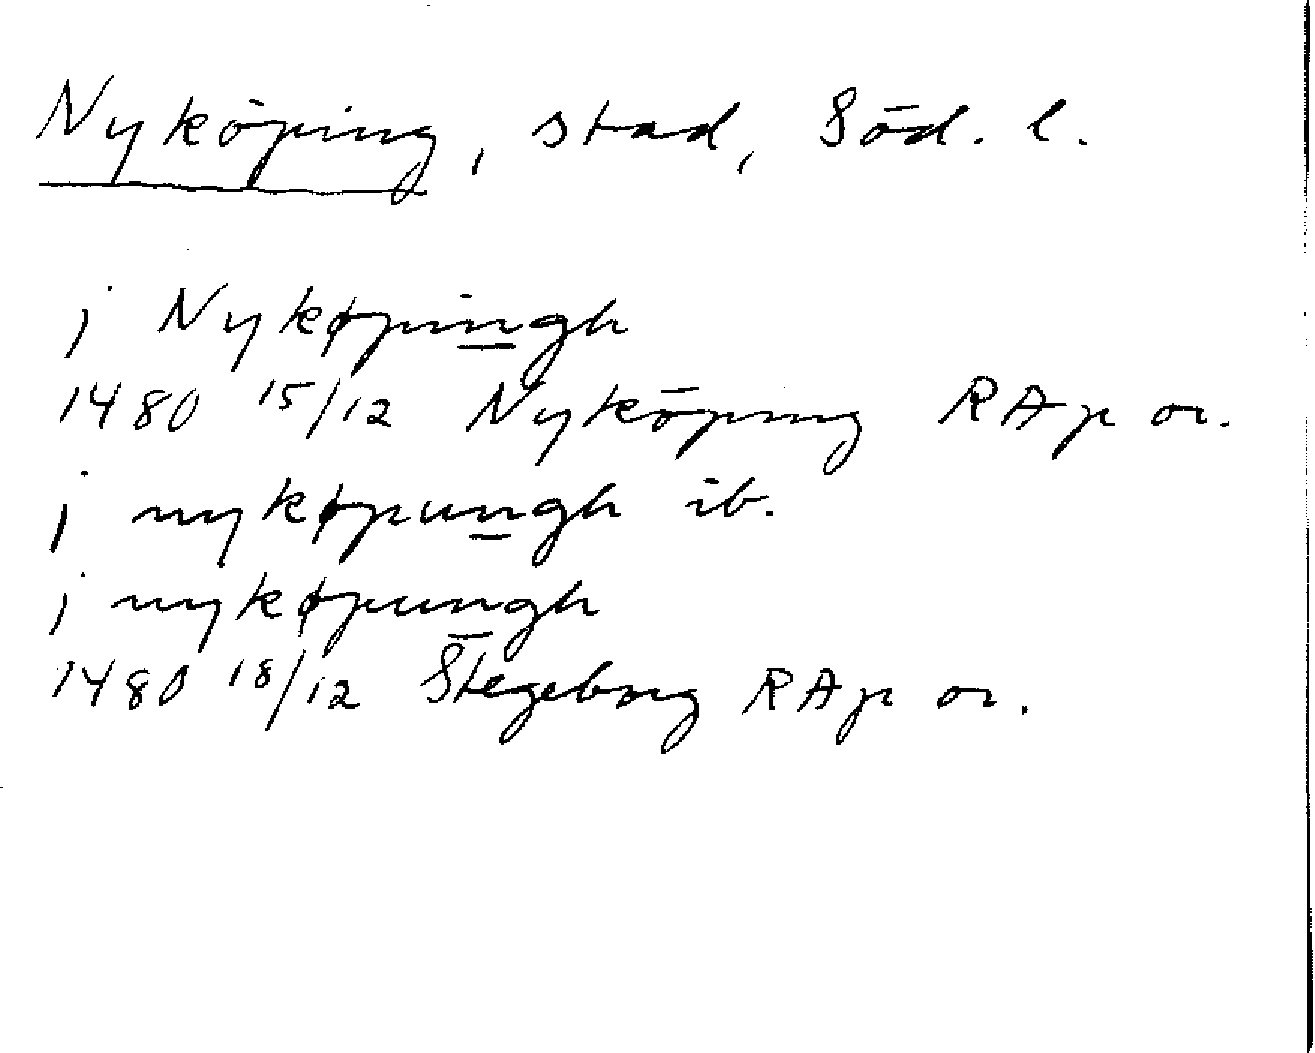 Nyköping, stad, Söd. l.
j Nykøpingh
1480 15/12 Nyköping RAp or.
j nykøpungh ib.
j nykøpungh
1480 18/12 Stegeborg RAp or.